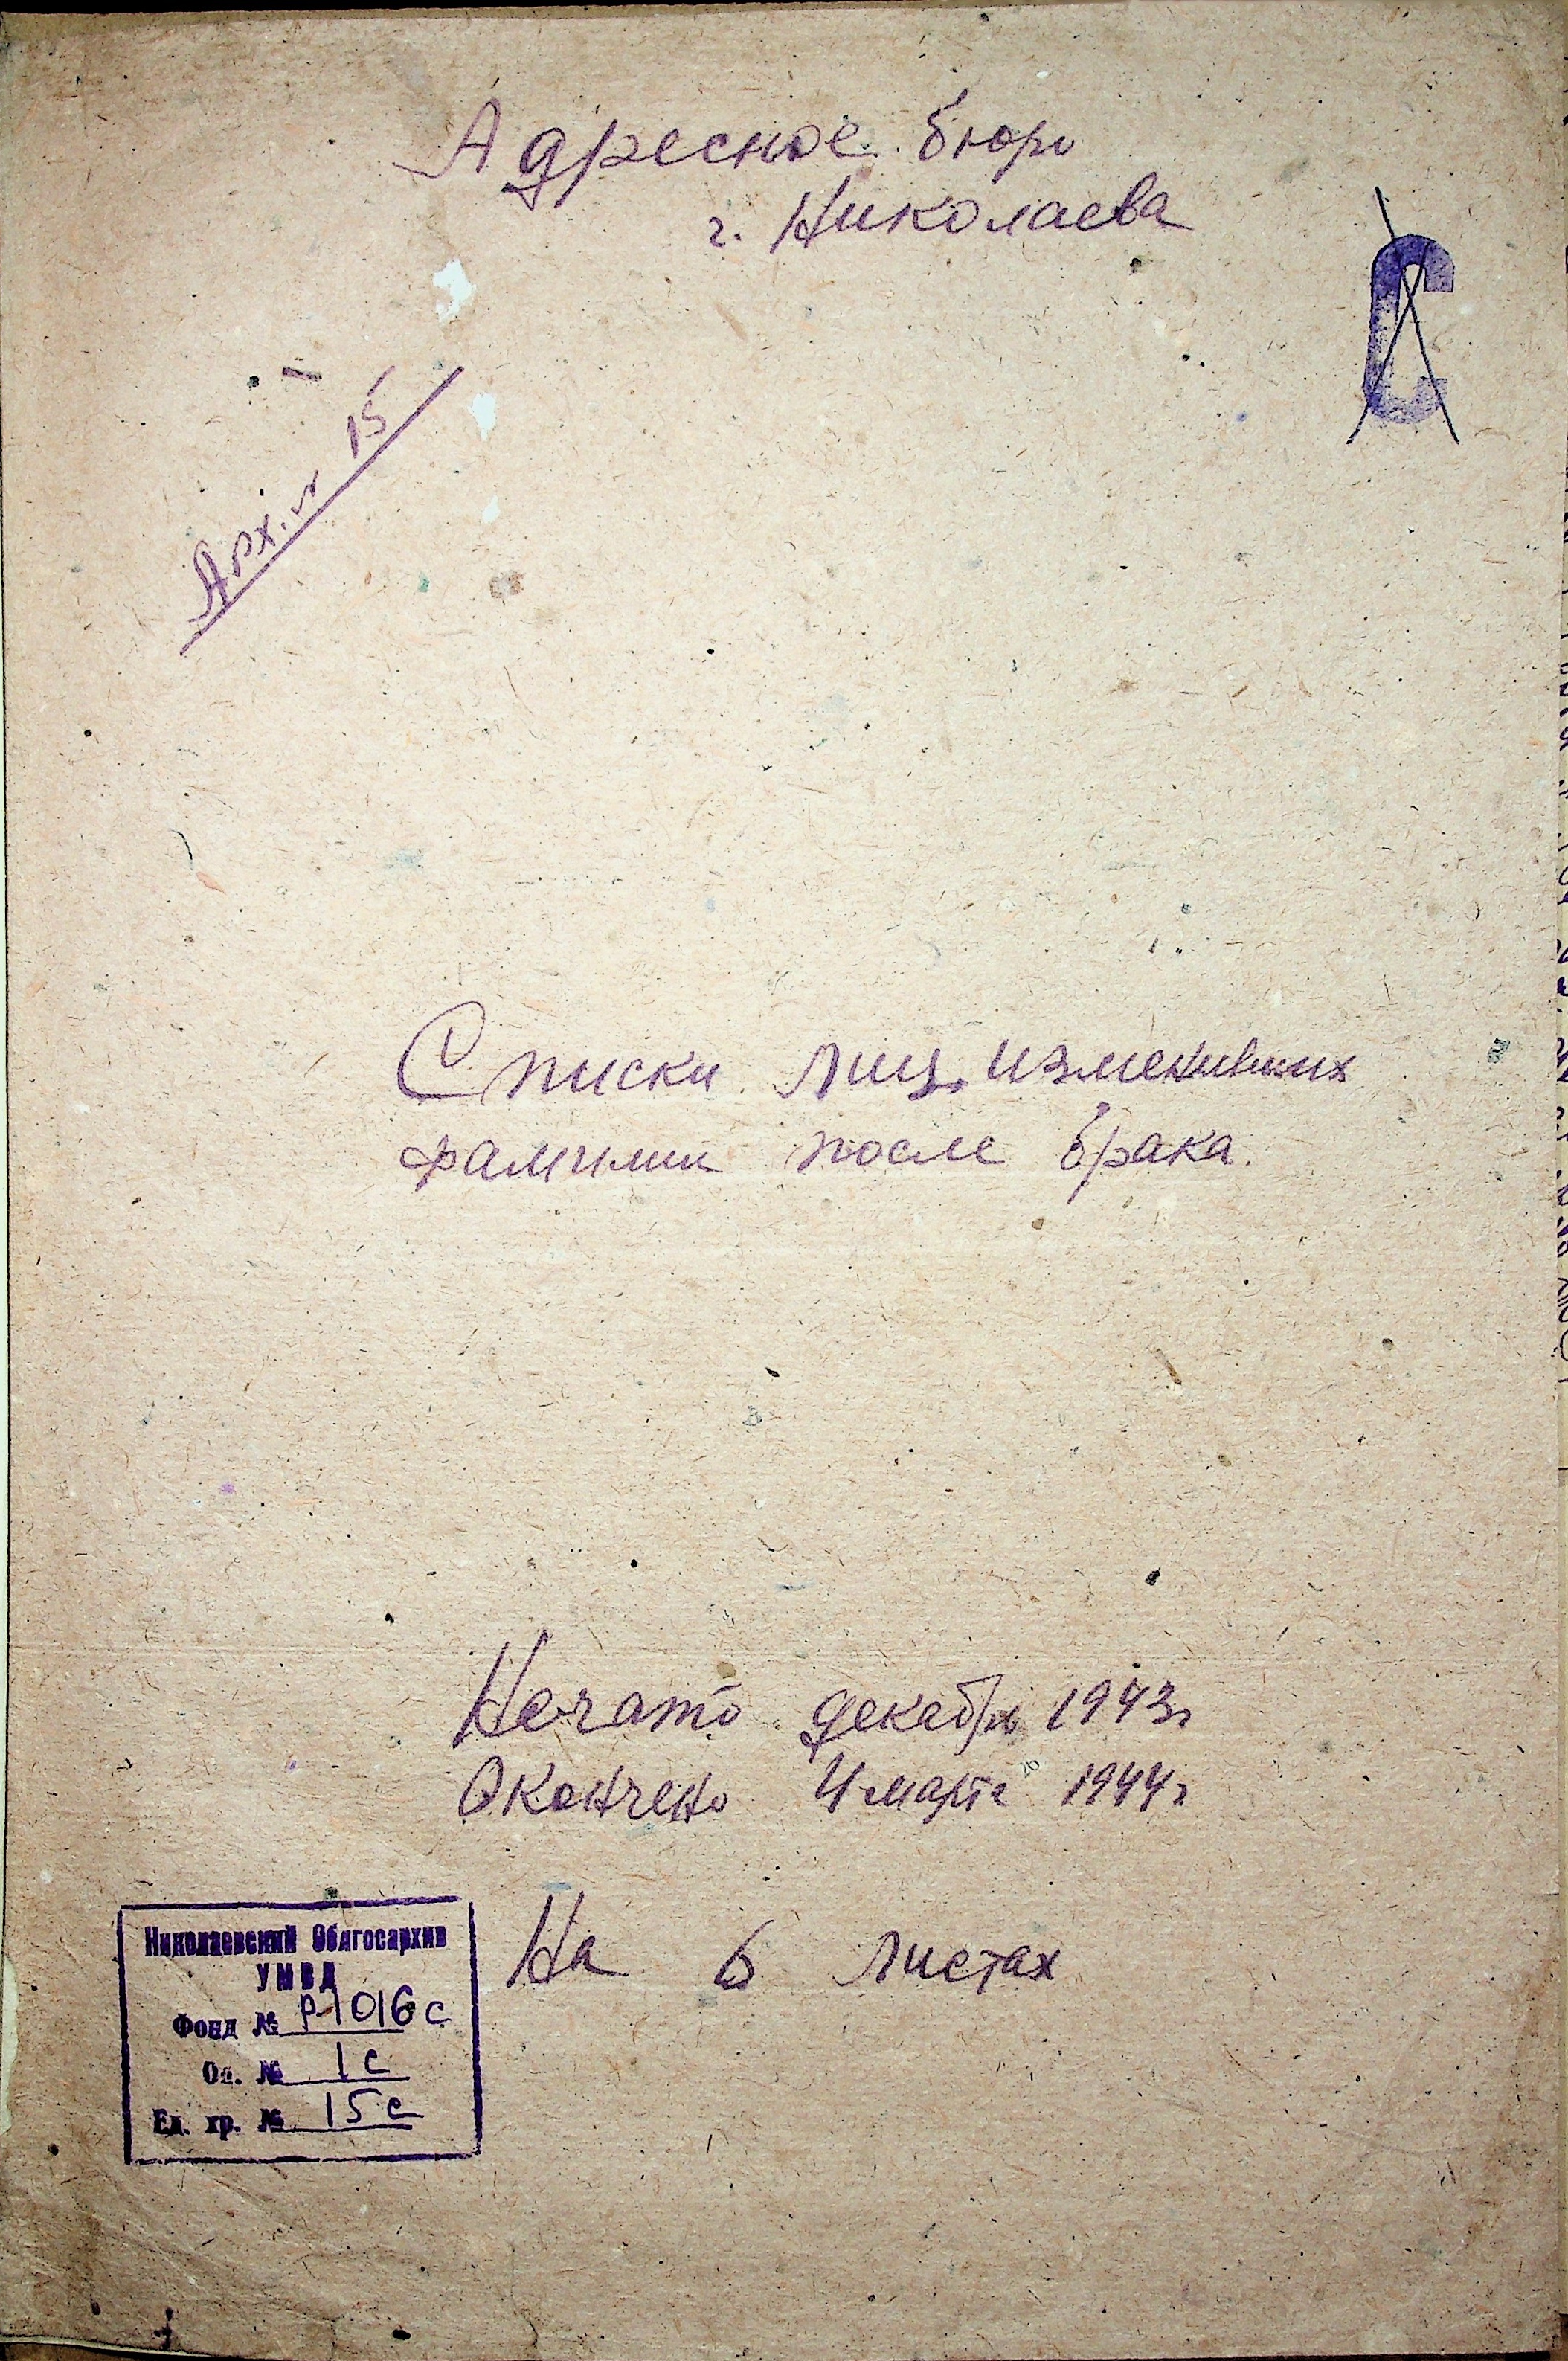 Адресное бюро
г. Николаева
С
Арх. № 15
Списки лиц, изменивших
фамилии после брака.
Начато декабрь 1943г
Окончено 4 марта 1944г
На 6 листах
Николаевский Облгосархив
УМВД
Фонд № Р-1016 с
Оп. № 1 с
Ед. хр. № 15 с